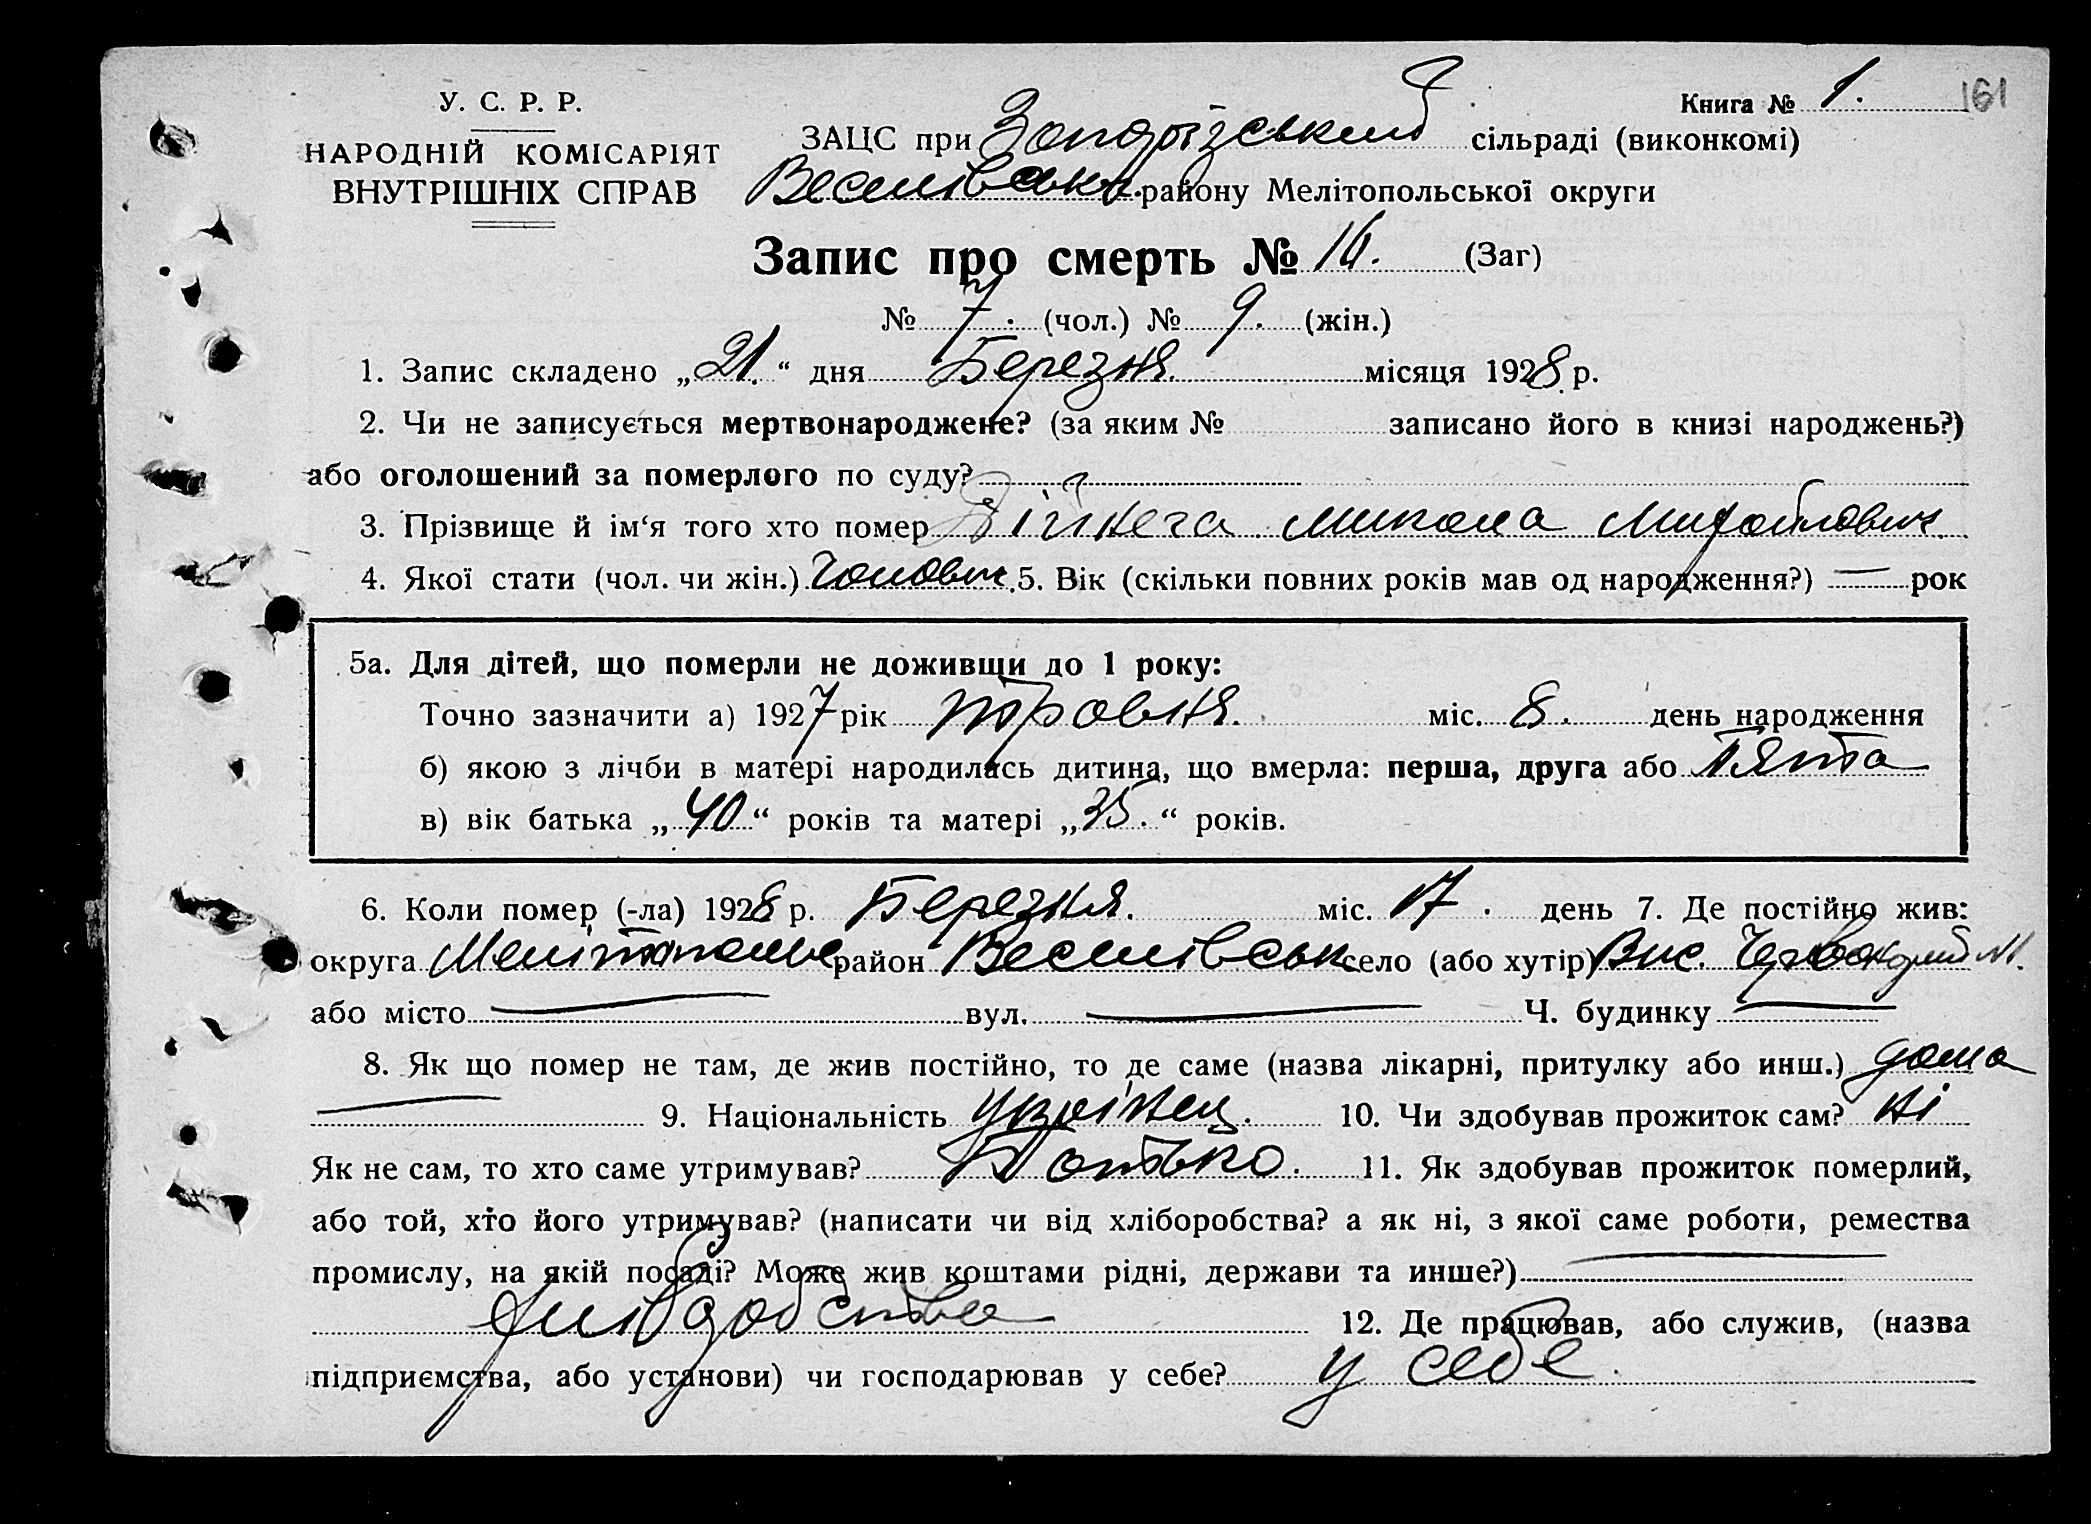 У. С. Р. Р.
НАРОДНІЙ КОМІСАРІЯТ
ВНУТРІШНІХ СПРАВ
Книга № 1. 161
ЗАЦС при сільраді (виконкомі)
Веселівськ. району Мелітопольської округи
Запис про смерть № 16. (Заг)
№ 7. (чол.) № 9. (жін.)
1. Запис складено „21.“ дня Березня. місяця 1928 р.
2. Чи не записується мертвонароджене? (за яким № записано його в книзі народжень?)
або оголошений за померлого по суду?
3. Прізвище й ім‘я того хто помер Микола Михайлович.
4. Якої стати (чол. чи жін.) Чоловіч. 5. Вік (скільки повних років мав од народження?) — рок
5а. Для дітей, що померли не доживщи до 1 року:
Точно зазначити а) 1927 рік міс. 8. день народження
б) якою з лічби в матері народилась дитина, що вмерла: перша, друга або Пята
в) вік батька „40“ років та матері „35.“ років.
6. Коли помер (-ла) 1928 р. Березня. міс. 17. день 7. Де постійно жив:
округа район Веселівськ село (або хутір) Вис.
або місто — вул. — Ч. будинку —
8. Як що помер не там, де жив постійно, то де саме (назва лікарні, притулку або инш.) дома
— 9. Національність Українец. 10. Чи здобував прожиток сам? Ні
Як не сам, то хто саме утримував? Батько. 11. Як здобував прожиток померлий,
або той, хто його утримував? (написати чи від хліборобства? а як ні, з якої саме роботи, ремества
промислу, на якій посаді? Може жив коштами рідні, держави та инше?) —
Хліборобства 12. Де працював, або служив, (назва
підприємства, або установи) чи господарював у себе? у себе.